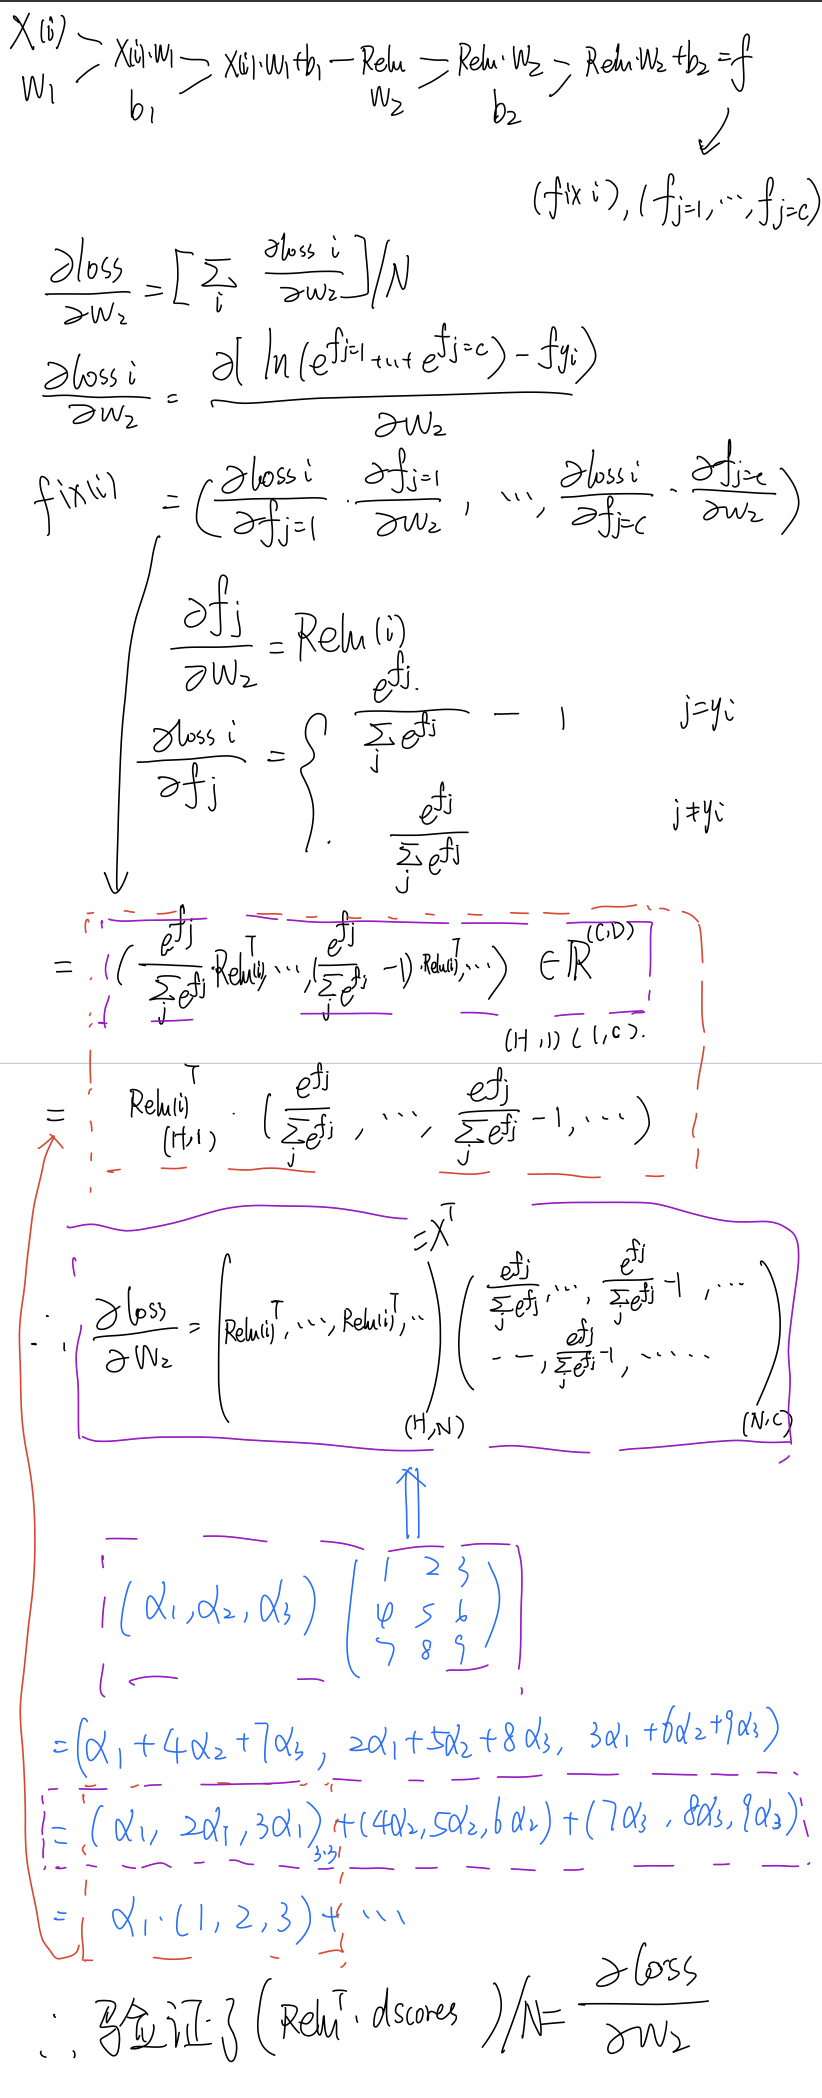 X(i)
W₁ X(i)·W₁ b₁ X(i)·W₁+b₁ — Relu W₂ Relu·W₂ b₂ Relu·W₂+b₂=f
(fix i), (f_{j=1}, ···, f_{j=c})
∂loss/∂W₂ = [∑_i ∂loss i/∂W₂]/N
∂loss i/∂W₂ = ∂( ln(e^{f_{j=1}}+···+e^{f_{j=c}}) - f_{yi})/∂W₂
fix(i) = (∂loss i/∂f_{j=1} · ∂f_{j=1}/∂W₂, ···, ∂loss i/∂f_{j=c} · ∂f_{j=c}/∂W₂)
∂fj/∂W₂ = Relu(i)
∂loss i/∂fj = { e^{fj}/∑_j e^{fj} - 1 j=yi
e^{fj}/∑_j e^{fj} j≠yi
= (e^{fj}/∑_j e^{fj}·Relu(i)^T, ···, (e^{fj}/∑_j e^{fj} -1)·Relu(i)^T, ···) ∈ ℝ^{(C,D)}
(H,1) (1,C).
= Relu(i)^T (H,1) · (e^{fj}/∑_j e^{fj}, ···, e^{fj}/∑_j e^{fj} -1, ···)
=X^T
∴ ∂loss/∂W₂ = (Relu(i)^T, ···, Relu(i)^T, ··)(H,N) (e^{fj}/∑_j e^{fj}, ···, e^{fj}/∑_j e^{fj} -1, ···
--, e^{fj}/∑_j e^{fj} -1, ······)(N,C)
(α₁,α₂,α₃) (1 2 3
4 5 6
7 8 9)
=(α₁+4α₂+7α₃, 2α₁+5α₂+8α₃, 3α₁+6α₂+9α₃)
= (α₁, 2α₁, 3α₁)_{3·3}+(4α₂,5α₂,6α₂)+(7α₃, 8α₃, 9α₃)
= α₁·(1,2,3)+ ···
∴ 验证了(Relu^T·dscores)/N= ∂loss/∂W₂